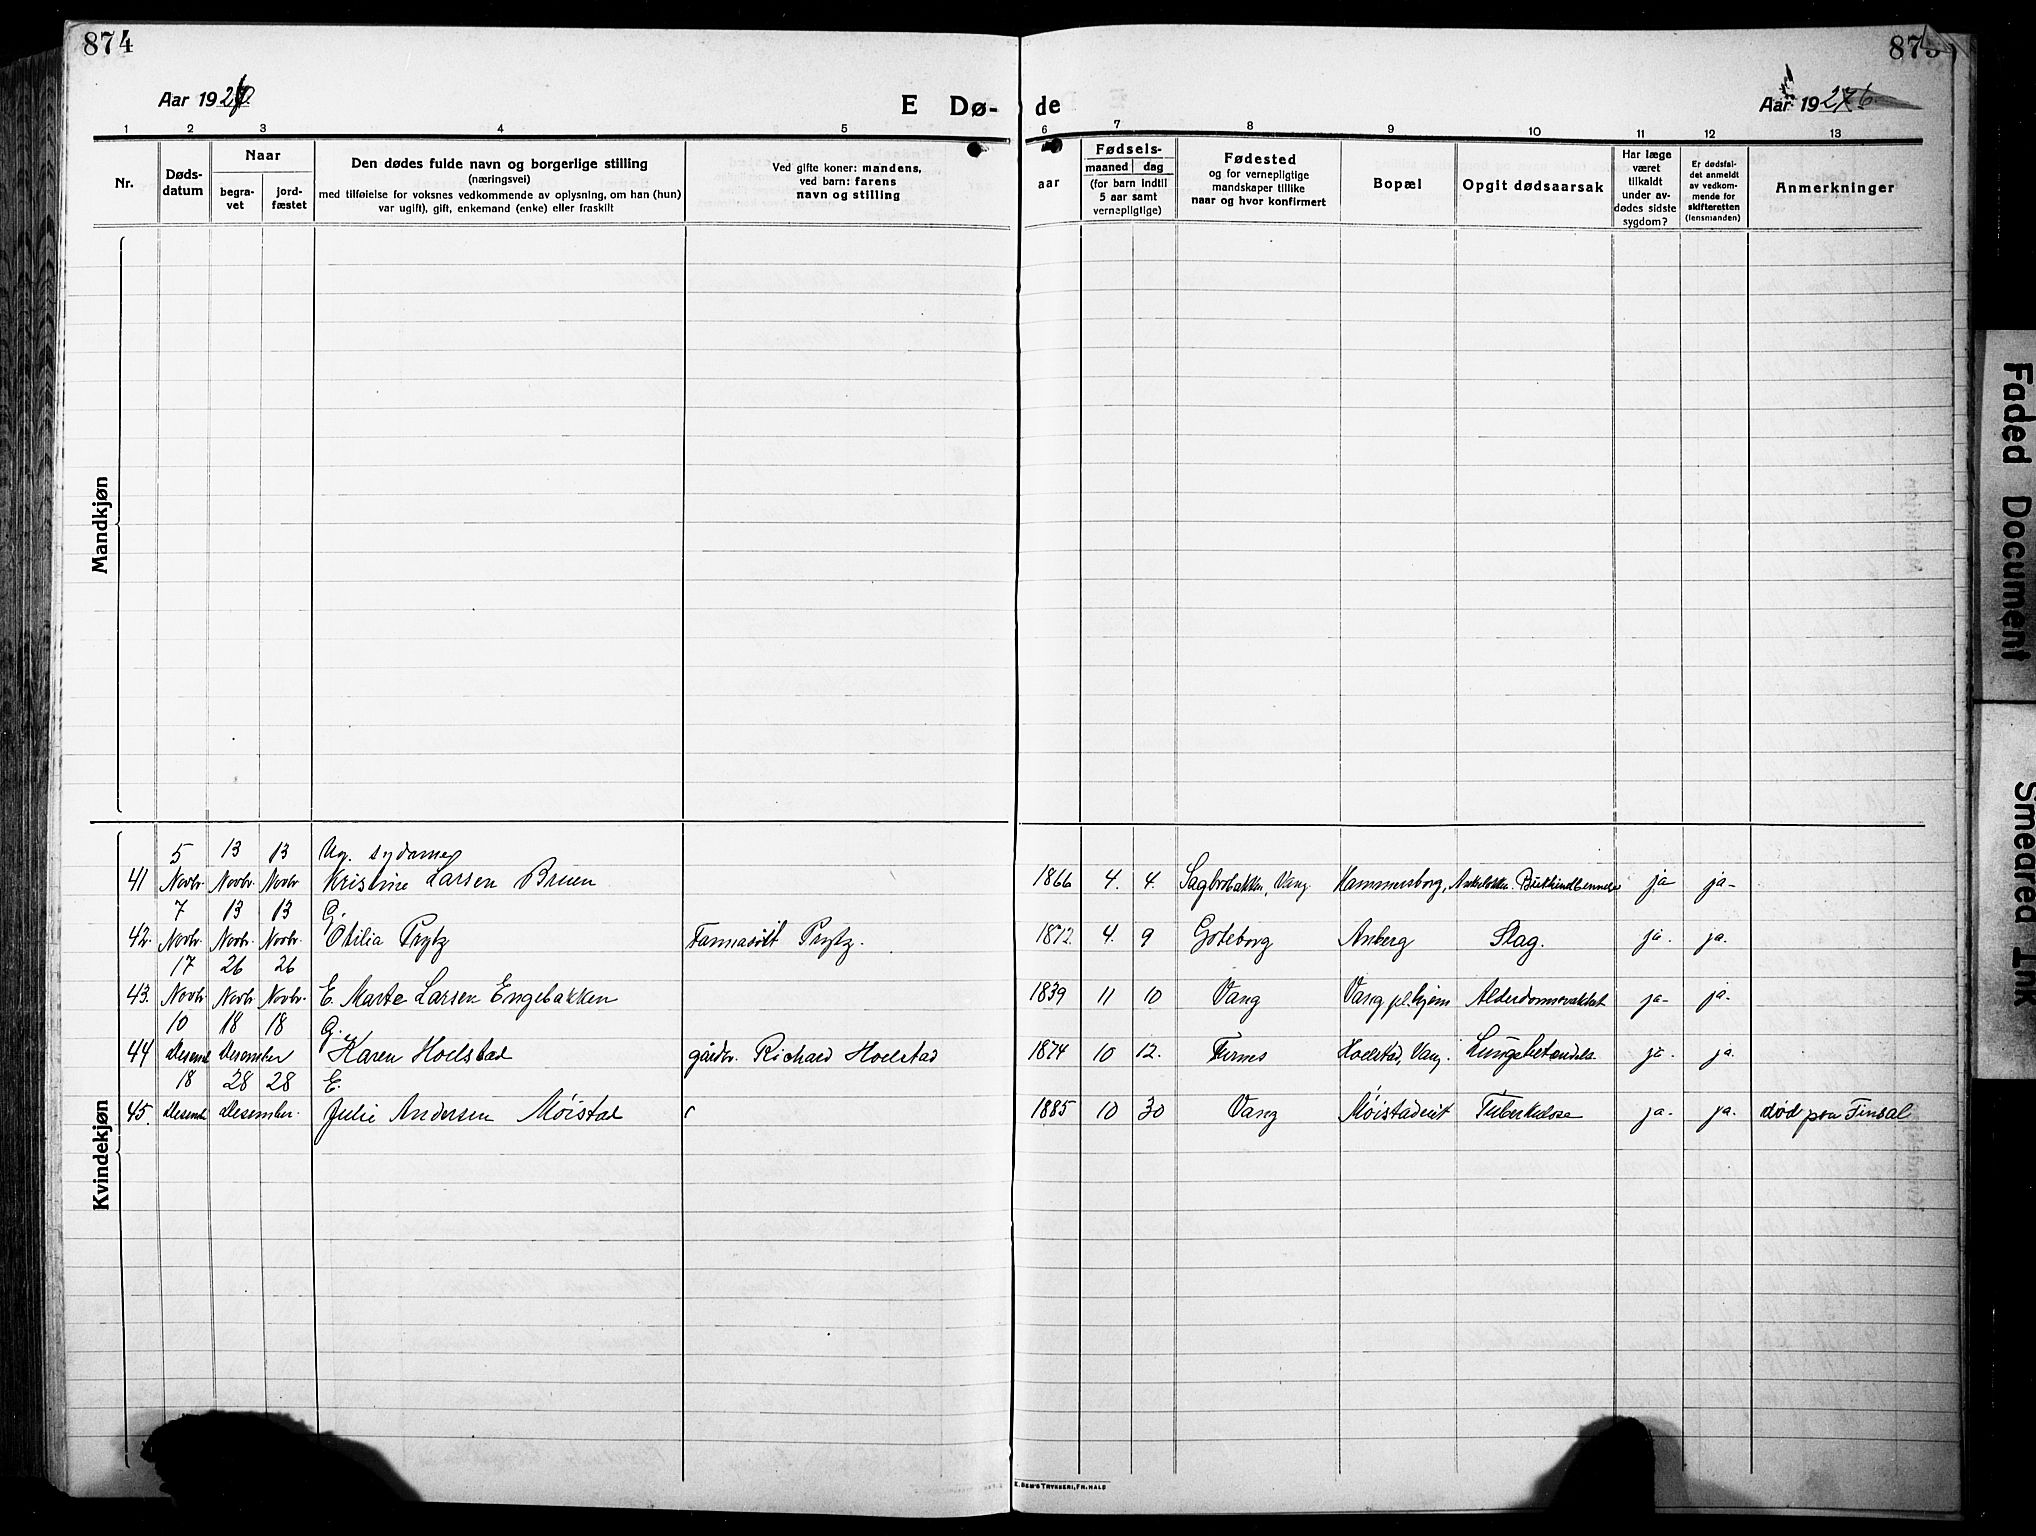 874
875
Aar 1926
E Dø-
de
Aar 1926
1 2 3 4 5 6 7 8 9 10 11 12 13
Nr.
Døds-
datum
Naar
begra-
vet
jord-
fæstet
Den dødes fulde navn og borgerlige stilling
(næringsvei)
med tilføielse for voksnes vedkommende av oplysning, om han (hun)
var ugift), gift, enkemand (enke) eller fraskilt
Ved gifte koner: mandens,
ved barn: farens
navn og stilling
aar
Fødsels-
maaned dag
(for barn indtil
5 aar samt
vernepligtige)
Fødested
og for vernepligtige
mandskaper tillike
naar og hvor konfirmert
Bopæl
Opgit dødsaarsak
Har læge
været
tilkaldt
under av-
dødes sidste
sygdom?
Er dødsfal-
det anmeldt
av vedkom-
mende for
skifteretten
(lensmanden)
Anmerkninger
Mandkjøn
Kvindekjøn
5 13 13 Ug. sydame
41 Novbr. Novbr. Novbr Kristine Larsen Bruen 1866 4. 4. Vang Hammersborg, ja ja-
7 13 13 G.
42. Novbr. Novbr. Novbr. Otilia Prytz Prytz. 1872. 4. 9 Gøteborg Anberg Slag. ja. ja.
17 26 26
43. Novbr. Novbr. Novbr. E. Marte Larsen Engebakken 1839 11 10 Vang Vang pl.hjem ja- ja.
10 18 18 G.
44 Desemb Desember Karen Hoelstad gårdbr. Richard Hoelstad 1874 10 12. Furnes Hoelstad, Vang. Lungebetændelse ja. ja.
18 28 28 E.
45. Desemb Desember. Julie Andersen Møistad 1885 10 30 Vang Møistadeiet Tuberkulose ja- ja. død paa Finsal
E. SEM'S TRYKKERI, FR.HALD
Faded Document
Smeared Ink